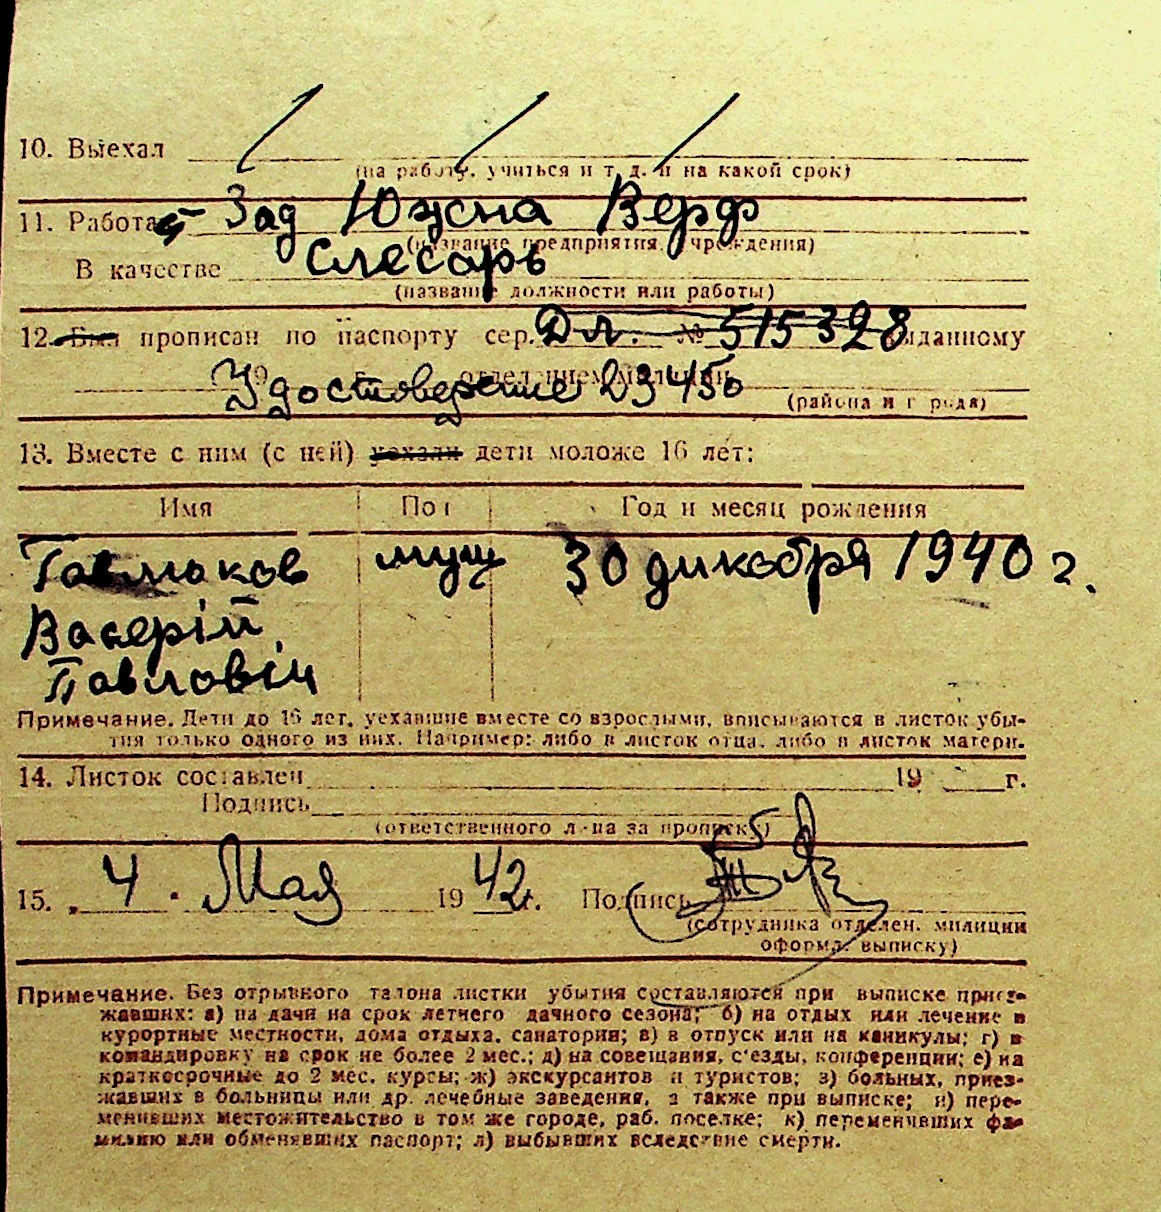 10. Выехал
(на работу, учиться и т. д. и на какой срок)
11. Работает Зад Южна Верф
(название предприятия, учреждения)
В качестве Слесарь
(название должности или работы)
12. Был прописан по паспорту сер. Дл. № 515328 выданному
19 г. отделением милиции
Удостоверение 23450
(района и города)
13. Вместе с ним (с ней) уехали дети моложе 16 лет:
Имя Пол Год и месяц рождения
муш 30 дикабря 1940 г.
Валерій
Павловіч
Примечание. Дети до 16 лет, уехавшие вместе со взрослыми, вписываются в листок убы-
тия только одного из них. Например: либо в листок отца, либо в листок матери.
14. Листок составлен 19 г.
Подпись
(ответственного л-ца за прописку)
15. 4. Мая 1942 г. Подпись
(сотрудника отделен. милиции
оформл. выписку)
Примечание. Без отрывного талона листки убытия составляются при выписке приез-
жавших: а) на дачи на срок летнего дачного сезона; б) на отдых или лечение в
курортные местности, дома отдыха, санатории; в) в отпуск или на каникулы; г) в
командировку на срок не более 2 мес.; д) на совещания, с'езды, конференции; е) на
краткосрочные до 2 мес. курсы; ж) экскурсантов и туристов; з) больных, приез-
жавших в больницы или др. лечебные заведения, а также при выписке; и) пере-
менивших местожительство в том же городе, раб. поселке; к) переменивших фа-
милию или обменявших паспорт; л) выбывших вследствие смерти.